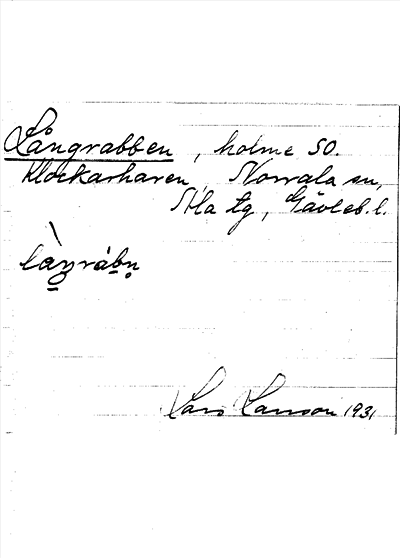 Långrabben, holme SO.
Klockarharen, Norrala sn,
Ala tg, Gävleb. l.
Lars Larsson 1931